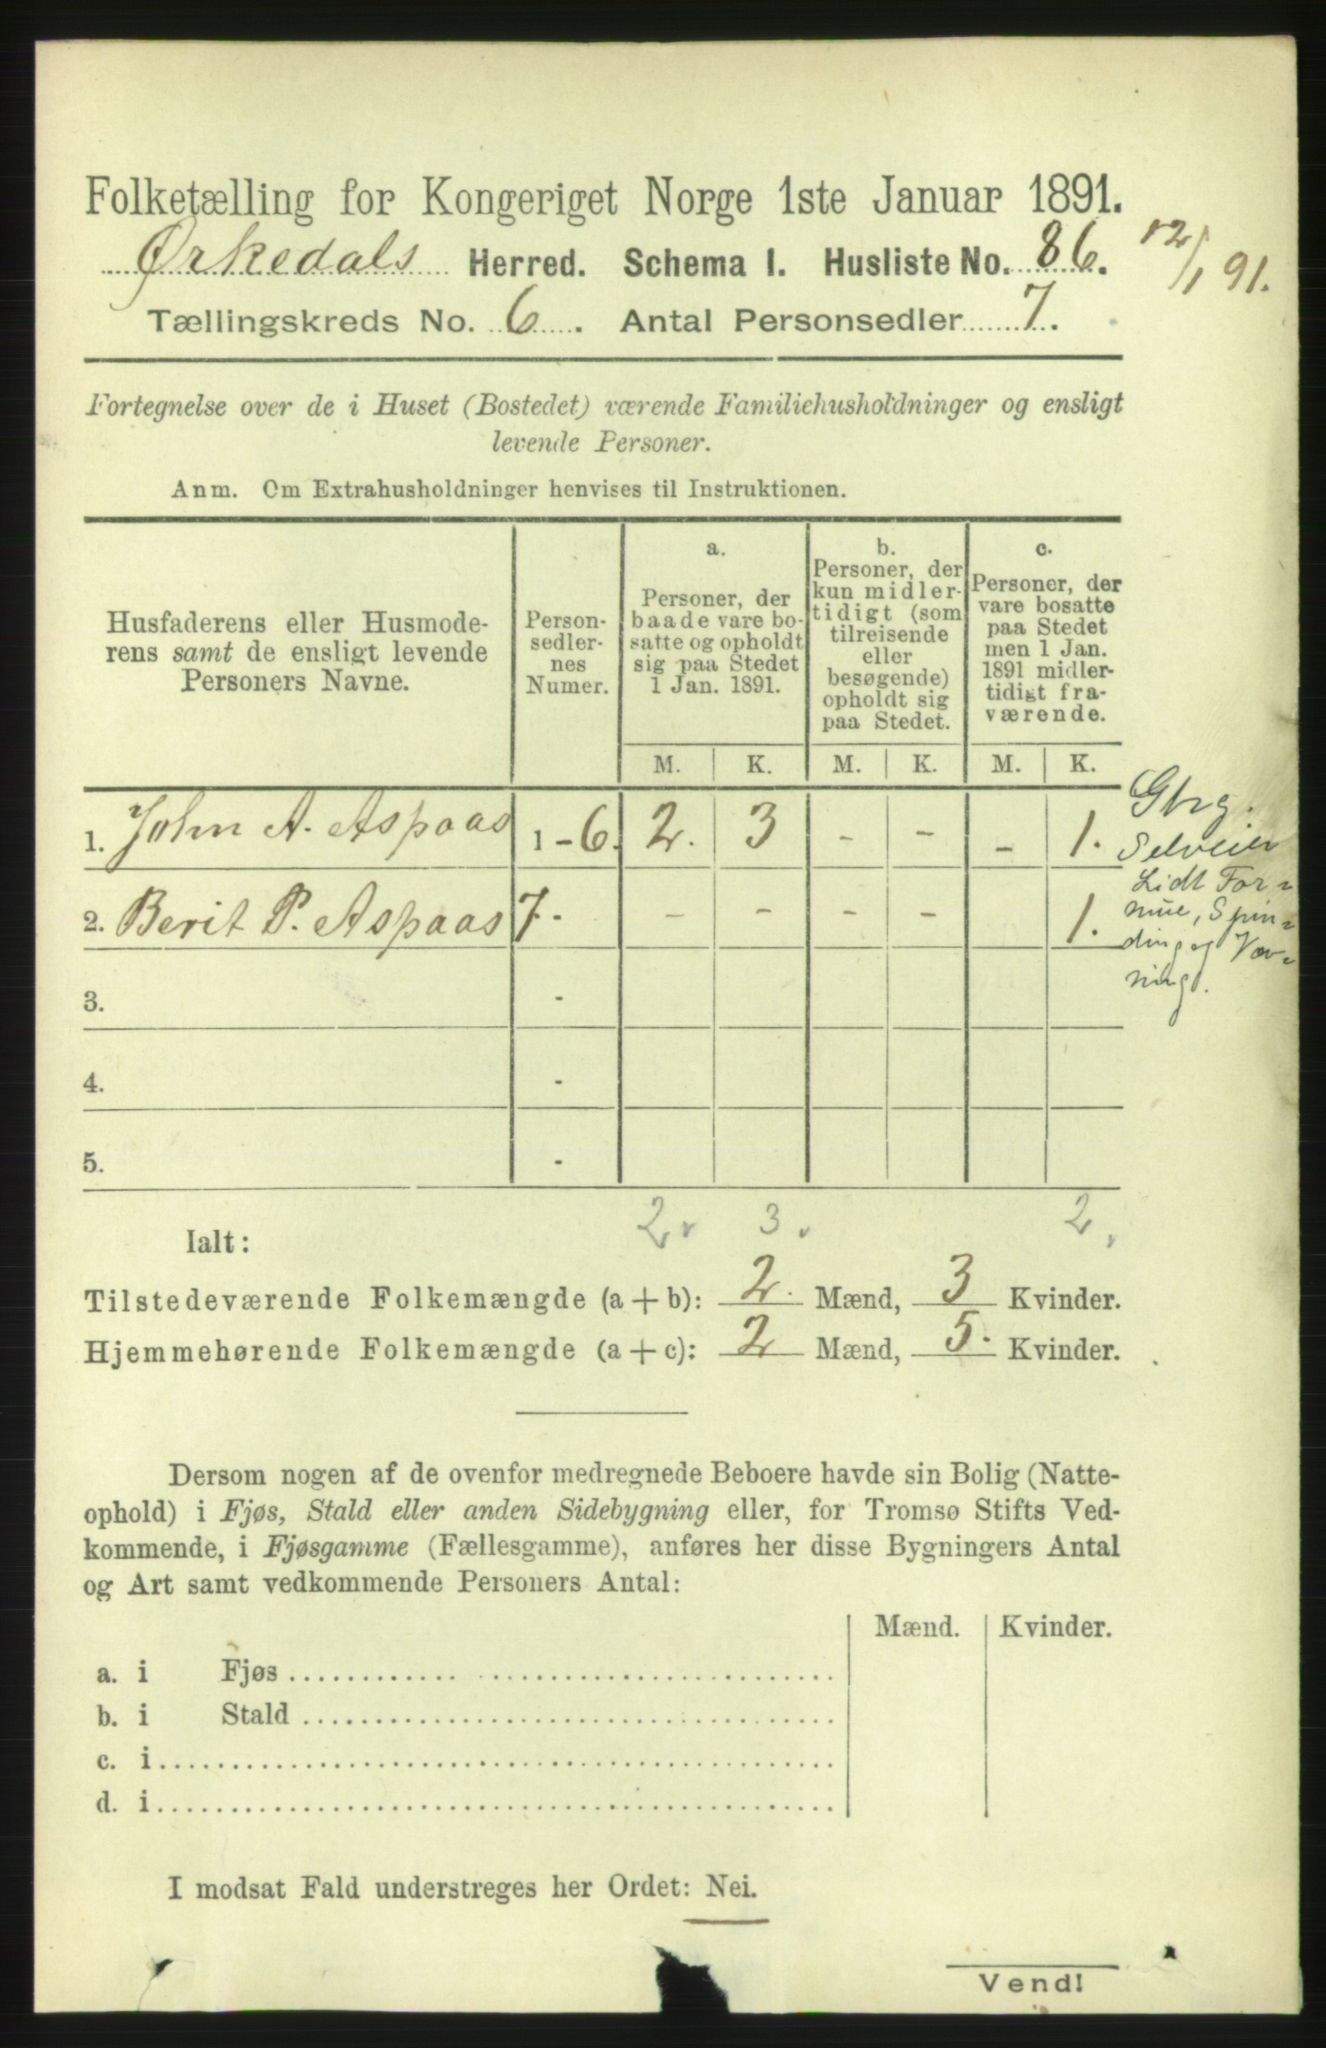 Folketælling for Kongeriget Norge 1ste Januar 1891.
Ørkedals Herred. Schema I. Husliste No. 86. 12/1 91.
Tællingskreds No. 6. Antal Personsedler 7.
Fortegnelse over de i Huset (Bostedet) værende Familiehusholdninger og ensligt
levende Personer.
Anm. Om Extrahusholdninger henvises til Instruktionen.
Husfaderens eller Husmode-
rens samt de ensligt levende
Personers Navne.
Person-
sedler-
nes
Numer.
a.
Personer, der
baade vare bo-
satte og opholdt
sig paa Stedet
1 Jan. 1891.
b.
Personer, der
kun midler-
tidigt (som
tilreisende
eller
besøgende)
opholdt sig
paa Stedet.
c.
Personer, der
vare bosatte
paa Stedet
men 1 Jan.
1891 midler-
tidigt fra-
værende.
M. K. M. K. M. K.
1. John A. Aspaas 1-6. 2. 3 - - - 1.
2. Berit P. Aspaas 7- - - - - 1.
3. -
4. -
5. -
Gbrg.
Selveier
Lidt For-
mue, Spin-
ding og Væv-
ning.
2. 3. 2.
Ialt:
Tilstedeværende Folkemængde (a + b): 2. Mænd, 3 Kvinder.
Hjemmehørende Folkemængde (a + c): 2 Mænd, 5. Kvinder.
Dersom nogen af de ovenfor medregnede Beboere havde sin Bolig (Natte-
ophold) i Fjøs, Stald eller anden Sidebygning eller, for Tromsø Stifts Ved-
kommende, i Fjøsgamme (Fællesgamme), anføres her disse Bygningers Antal
og Art samt vedkommende Personers Antal:
Mænd. Kvinder.
a. i Fjøs
b. i Stald
c. i
d. i
I modsat Fald understreges her Ordet: Nei.
Vend!